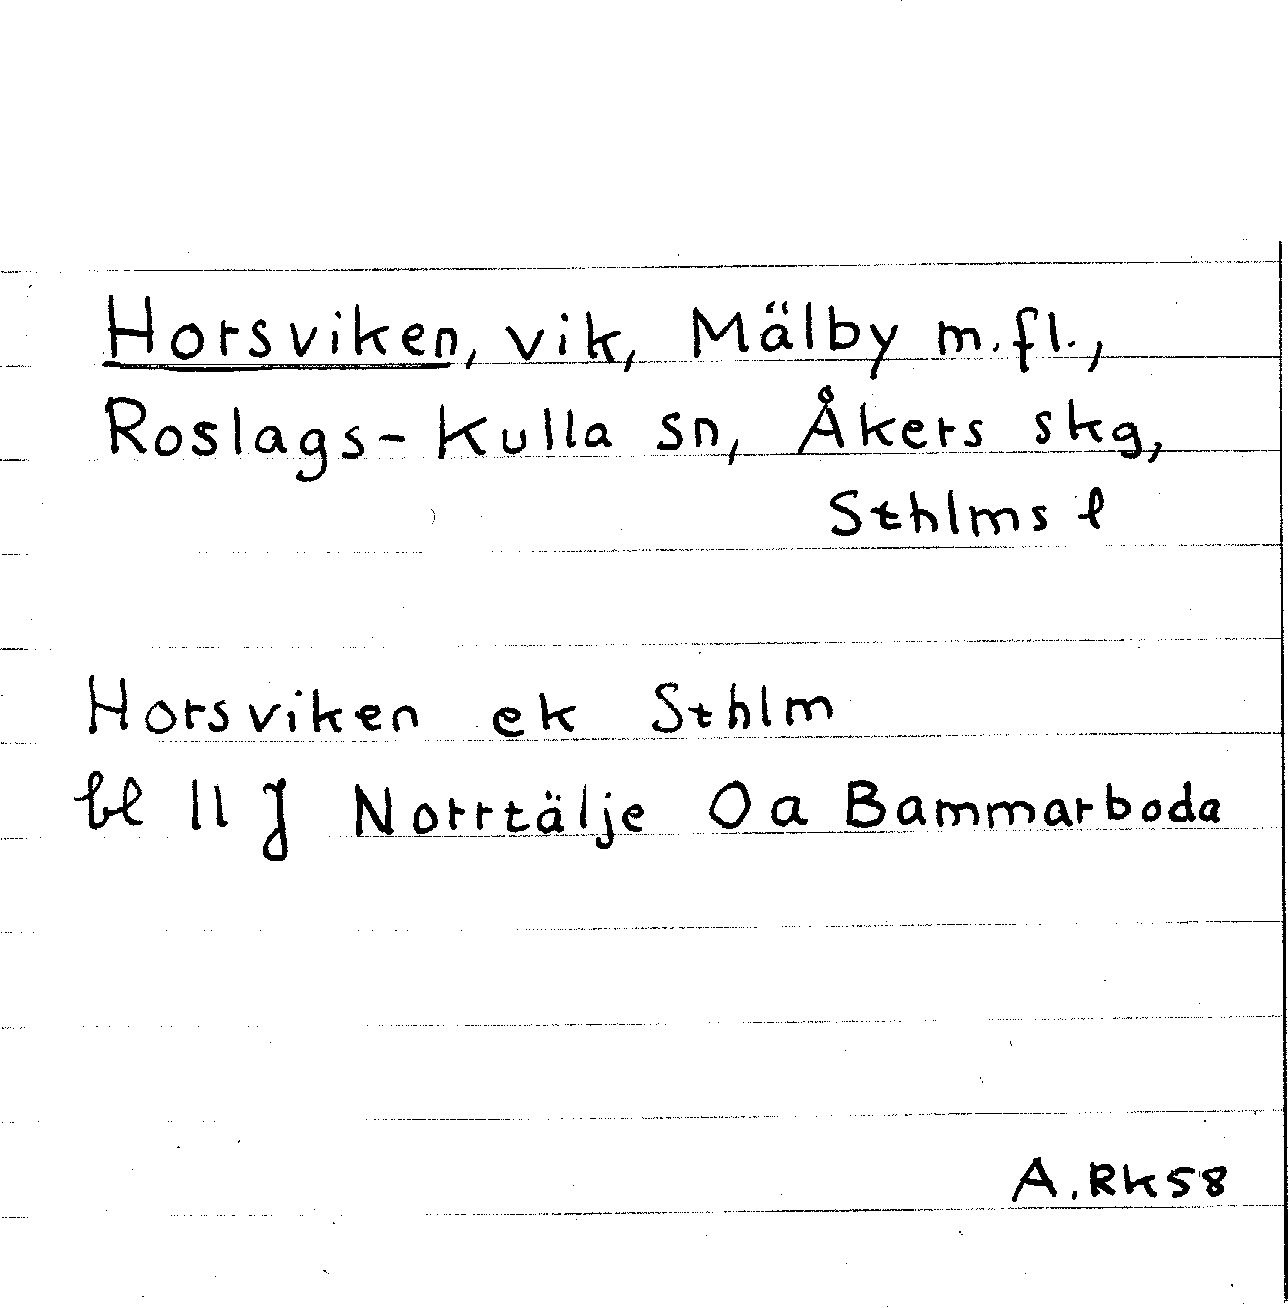 Horsviken, vik, Mälby m.fl.,
Roslags-Kulla sn, Åkers skg,
Sthlms l
Horsviken ek Sthlm
bl 11 J Norrtälje Oa Bammarboda
A.RK58